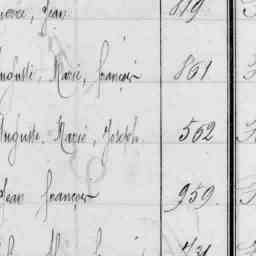 Jean 819.
Auguste, Marie, François 861
Auguste, Marie, Joseph 562
Jean François 959.